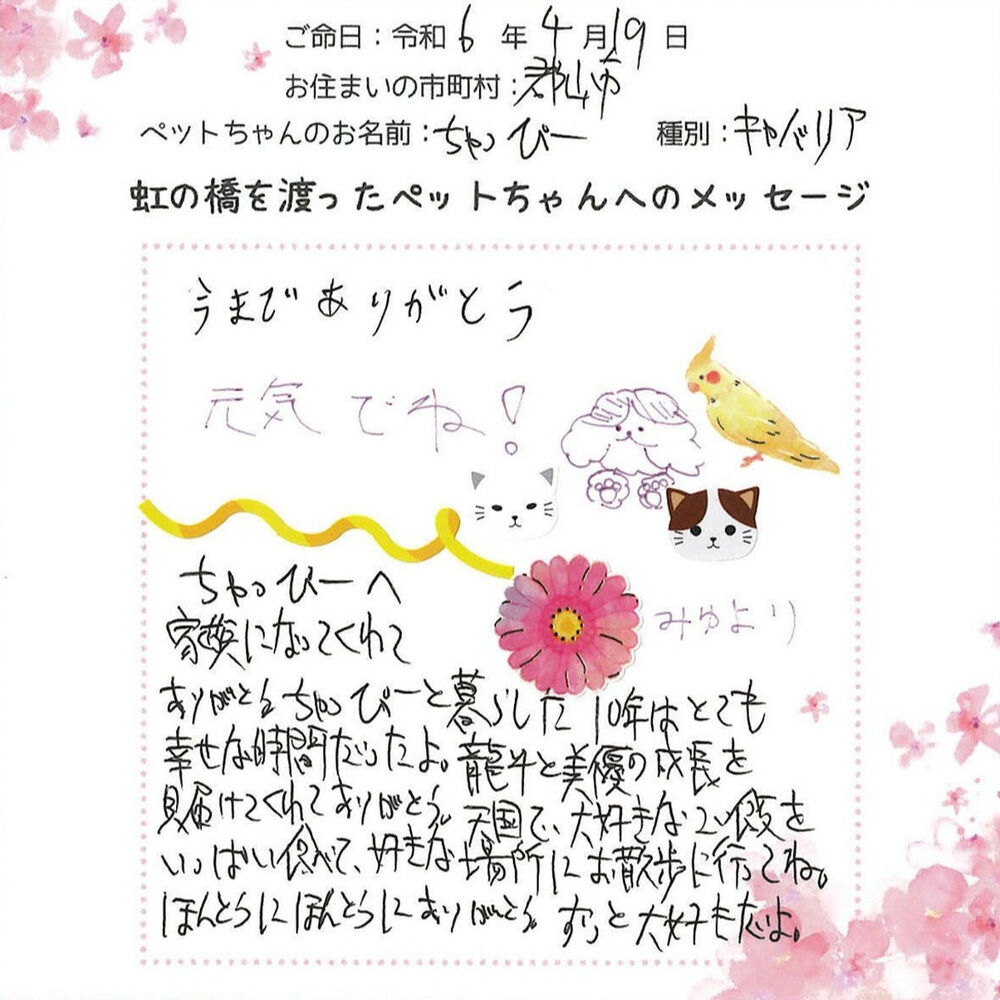 ご命日：令和6年4月19日
お住まいの市町村：郡山市
ペットちゃんのお名前：ちゃっぴー 種別：キャバリア
虹の橋を渡ったペットちゃんへのメッセージ
今までありがとう
元気でね！
ちゃっぴーへ
みゆより
家族になってくれて
ありがとう ちゃっぴーと暮らした10年はとても
幸せな時間だったよ。龍斗と美優の成長を
見届けてくれてありがとう。天国で、大好きなご飯を
いっぱい食べて、好きな場所にお散歩に行ってね。
ほんとうにほんとうにありがとう。ずっと大好きだよ。